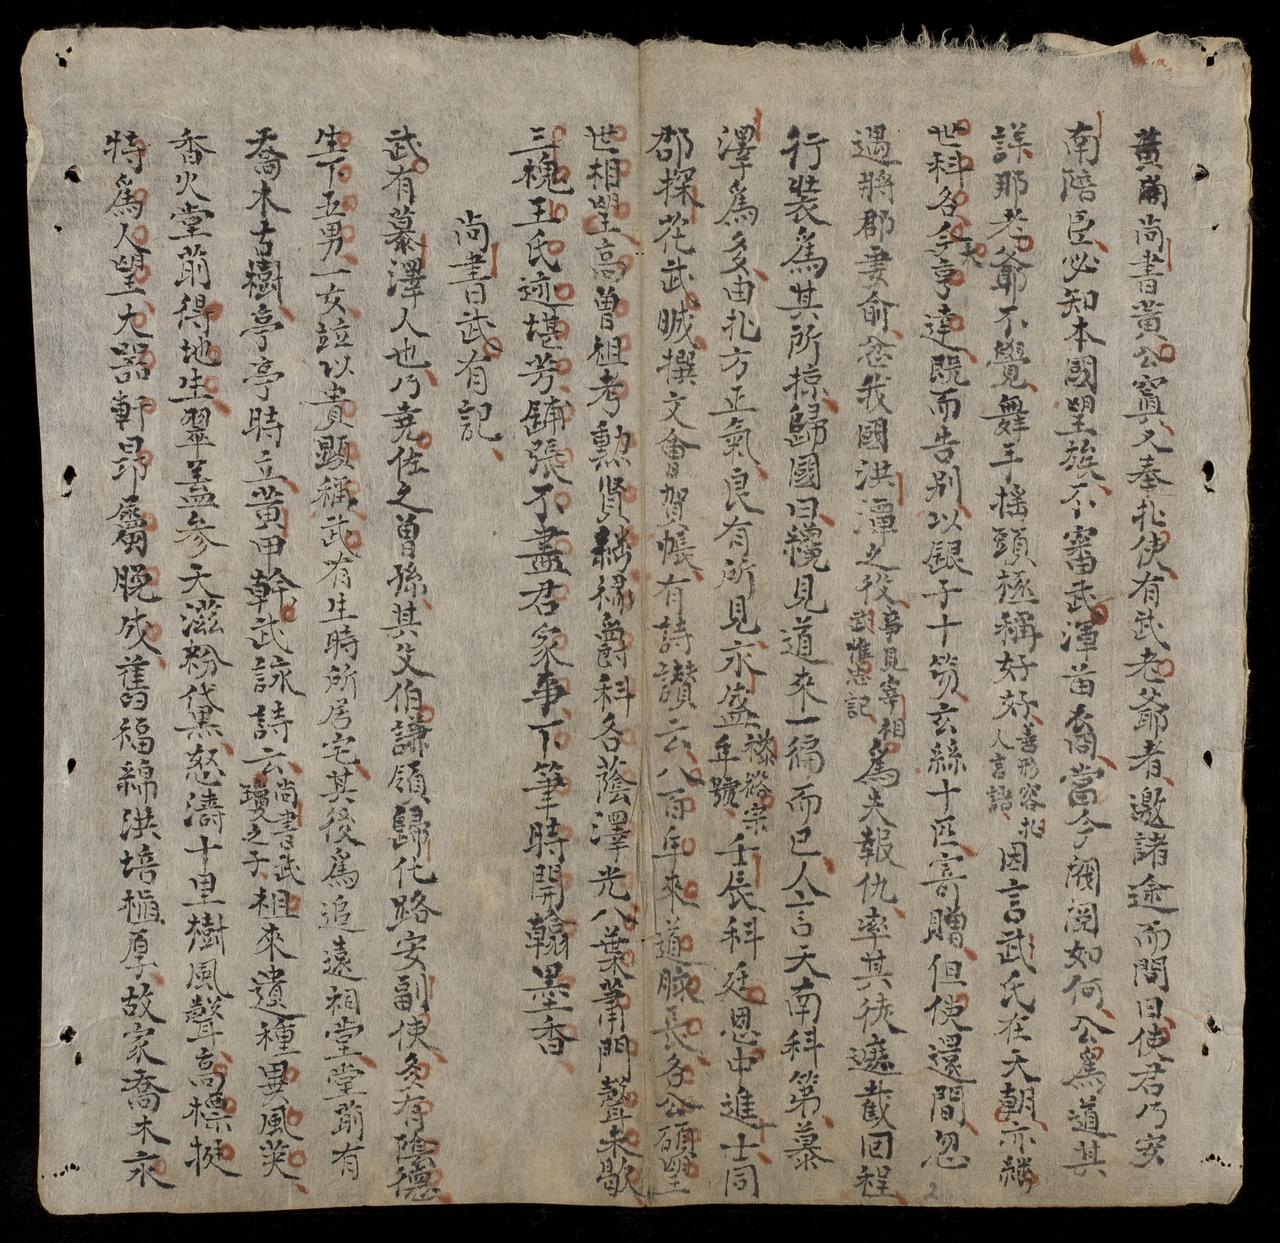 黃甫尚書黃公寘又奉北使有武老爺者邀諸途而問曰使君乃安
南陪臣必知本國望族不審武渾苗裔當今閥閱如何公為道其
詳那老爺不覺舞手搖頭極稱好好善形容北人言語因言武氏在天朝亦継
世科名今大亨達既而告別以銀子十笏玄絲十匹寄贈但使還間忽
過將郡妻俞忿我國洪潭之役事見宰相武惟忠記為夫報仇率其徒遮截回程
行裝為其所掠歸國日攙見道來一編而已人言天南科第慕
澤為多由北方正氣良有所見永盛裕宗年號壬辰科廷恩中進士同
郡探花武晠撰文會賀帳有詩讃云八百年來道脉長名公碩望
世相望高曽祖考勲贤継禰爵科名蔭澤光八葉蕭門聲未歇
三槐王氏迹堪芳舖張不盡君家事下筆時開翰墨香
尚書武有記
武有慕澤人也乃尭佐之曽孫其父伯謙領歸化路安副使多有陰德
生下五男一女竝以貴顯稱武有生時所居宅其後為追遠祠堂堂前有
喬木古樹亭亭時立黃甲幹武詠詩云尚書武瓊之子祖來遺種異風荑
香火堂前得地生翠盖參天滋粉黛怒濤十里樹風聲高標挺
特為人望大器軒昂屬脱成舊福綿洪培植厚故家喬木永